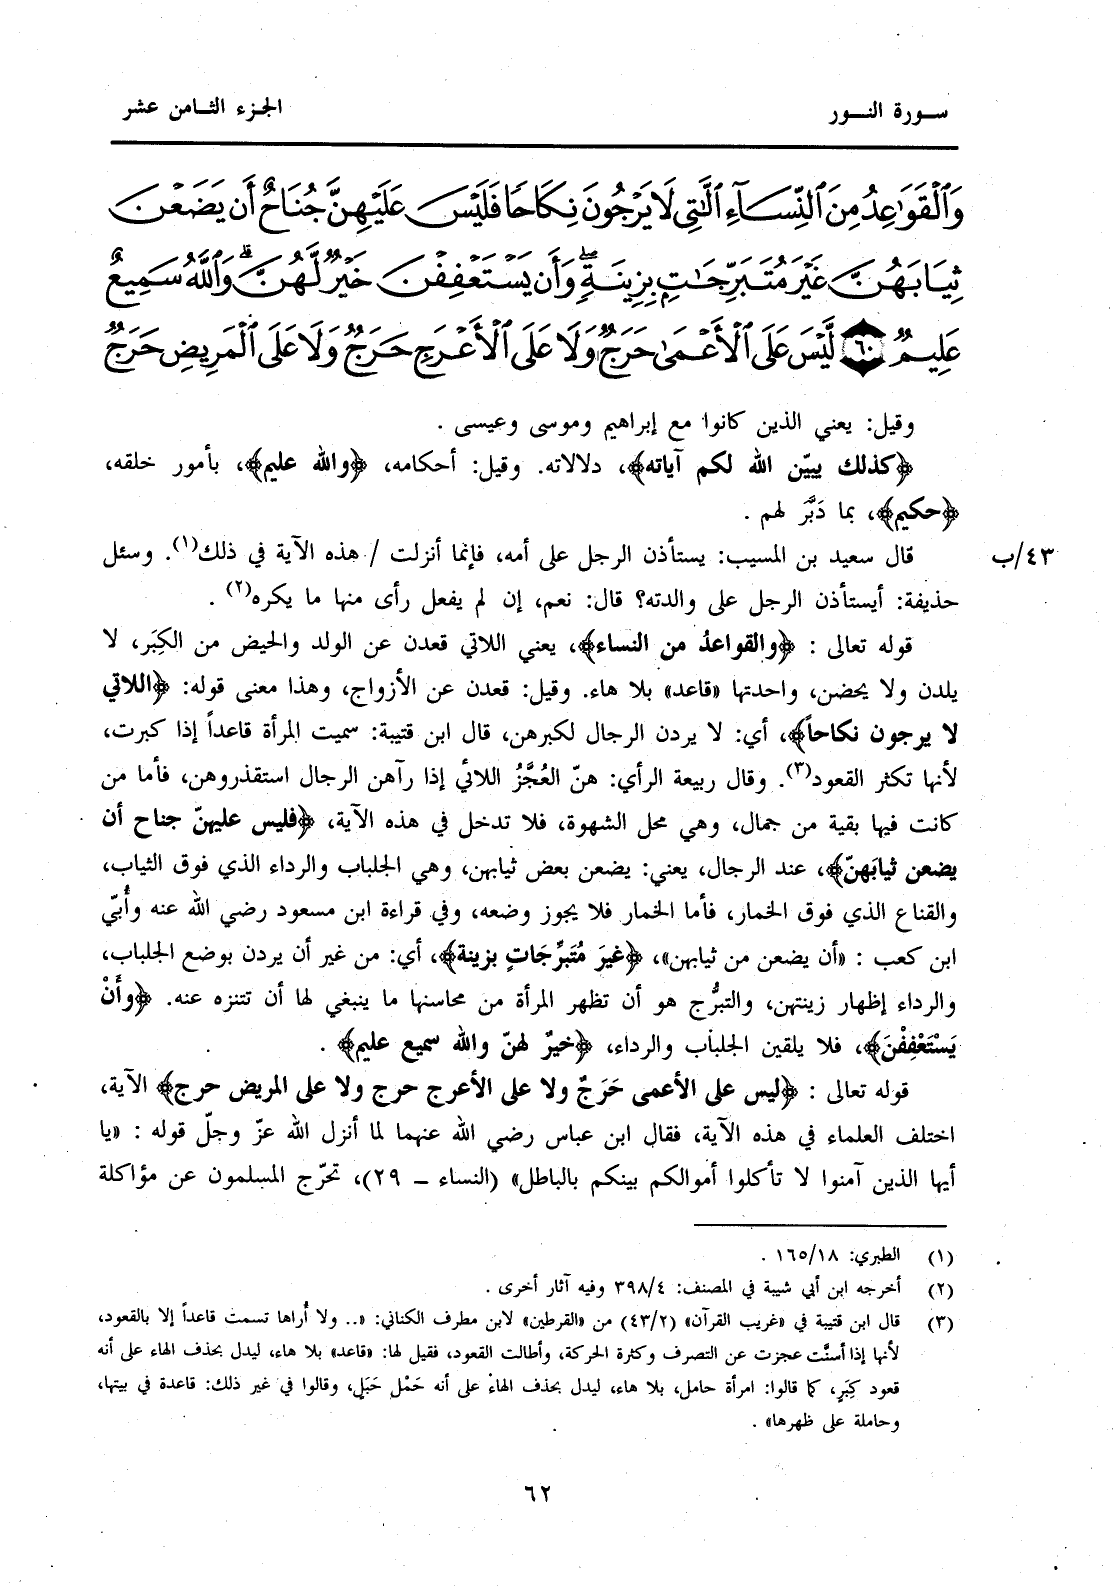 سورة النور
الجزء الثامن عشر
وَٱلْقَوَٰعِدُ مِنَ ٱلنِّسَآءِ ٱلَّٰتِى لَا يَرْجُونَ نِكَاحًا فَلَيْسَ عَلَيْهِنَّ جُنَاحٌ أَن يَضَعْنَ
ثِيَابَهُنَّ غَيْرَ مُتَبَرِّجَٰتٍۭ بِزِينَةٍۖ وَأَن يَسْتَعْفِفْنَ خَيْرٌ لَّهُنَّۗ وَٱللَّهُ سَمِيعٌ
عَلِيمٌ ٦٠ لَّيْسَ عَلَى ٱلْأَعْمَىٰ حَرَجٌ وَلَا عَلَى ٱلْأَعْرَجِ حَرَجٌ وَلَا عَلَى ٱلْمَرِيضِ حَرَجٌ
وقيل: يعني الذين كانوا مع إبراهيم وموسى وعيسى .
﴿كذلك يبيّن الله لكم آياته﴾، دلالاته. وقيل: أحكامه، ﴿والله عليم﴾، بأمور خلقه،
﴿حكيم﴾، بما دَبَّر لهم .
قال سعيد بن المسيب: يستأذن الرجل على أمه، فإنما أنزلت / هذه الآية في ذلك(١). وسئل
٤٣/ب
حذيفة: أيستأذن الرجل على والدته؟ قال: نعم، إن لم يفعل رأى منها ما يكره(٢) .
قوله تعالى : ﴿والقواعدُ من النساء﴾، يعني اللاتي قعدن عن الولد والحيض من الكِبَر، لا
يلدن ولا يحضن، واحدتها «قاعد» بلا هاء. وقيل: قعدن عن الأزواج، وهذا معنى قوله: ﴿اللاتي
لا يرجون نكاحاً﴾، أي: لا يردن الرجال لكبرهن، قال ابن قتيبة: سميت المرأة قاعداً إذا كبرت،
لأنها تكثر القعود(٣). وقال ربيعة الرأي: هنّ العُجَّزُ اللائي إذا رآهن الرجال استقذروهن، فأما من
كانت فيها بقية من جمال، وهي محل الشهوة، فلا تدخل في هذه الآية، ﴿فليس عليهنّ جناح أن
يضعن ثيابَهنّ﴾، عند الرجال، يعني: يضعن بعض ثيابهن، وهي الجلباب والرداء الذي فوق الثياب،
والقناع الذي فوق الخمار، فأما الخمار فلا يجوز وضعه، وفي قراءة ابن مسعود رضي الله عنه وأُبيّ
ابن كعب : «أن يضعن من ثيابهن»، ﴿غيرَ مُتَبرِّجَاتٍ بزينة﴾، أي: من غير أن يردن بوضع الجلباب،
والرداء إظهار زينتهن، والتبرُّج هو أن تظهر المرأة من محاسنها ما ينبغي لها أن تتنزه عنه. ﴿وأَنْ
يَسْتَعْفِفْنَ﴾، فلا يلقين الجلباب والرداء، ﴿خيرٌ لهنّ والله سميع عليم﴾ .
قوله تعالى : ﴿ليس على الأعمى حَرَجٌ ولا على الأعرج حرج ولا على المريض حرج﴾ الآية،
اختلف العلماء في هذه الآية، فقال ابن عباس رضي الله عنهما لما أنزل الله عزّ وجلّ قوله : «يا
أيها الذين آمنوا لا تأكلوا أموالكم بينكم بالباطل» (النساء ــ ٢٩)، تحرّج المسلمون عن مؤاكلة
(١) الطبري: ١٦٥/١٨ .
(٢) أخرجه ابن أبي شيبة في المصنف: ٣٩٨/٤ وفيه آثار أخرى .
(٣) قال ابن قتيبة في «غريب القرآن» (٤٣/٢) من «القرطين» لابن مطرف الكناني: «.. ولا أُراها تسمت قاعداً إلا بالقعود،
لأنها إذا أسنَّت عجزت عن التصرف وكثرة الحركة، وأطالت القعود، فقيل لها: «قاعد» بلا هاء، ليدل بحذف الهاء على أنه
قعود كِبَرٍ، كما قالوا: امرأة حامل، بلا هاء، ليدل بحذف الهاء على أنه حَمْل حَبَلٍ، وقالوا في غير ذلك: قاعدة في بيتها،
وحاملة على ظهرها» .
٦٢